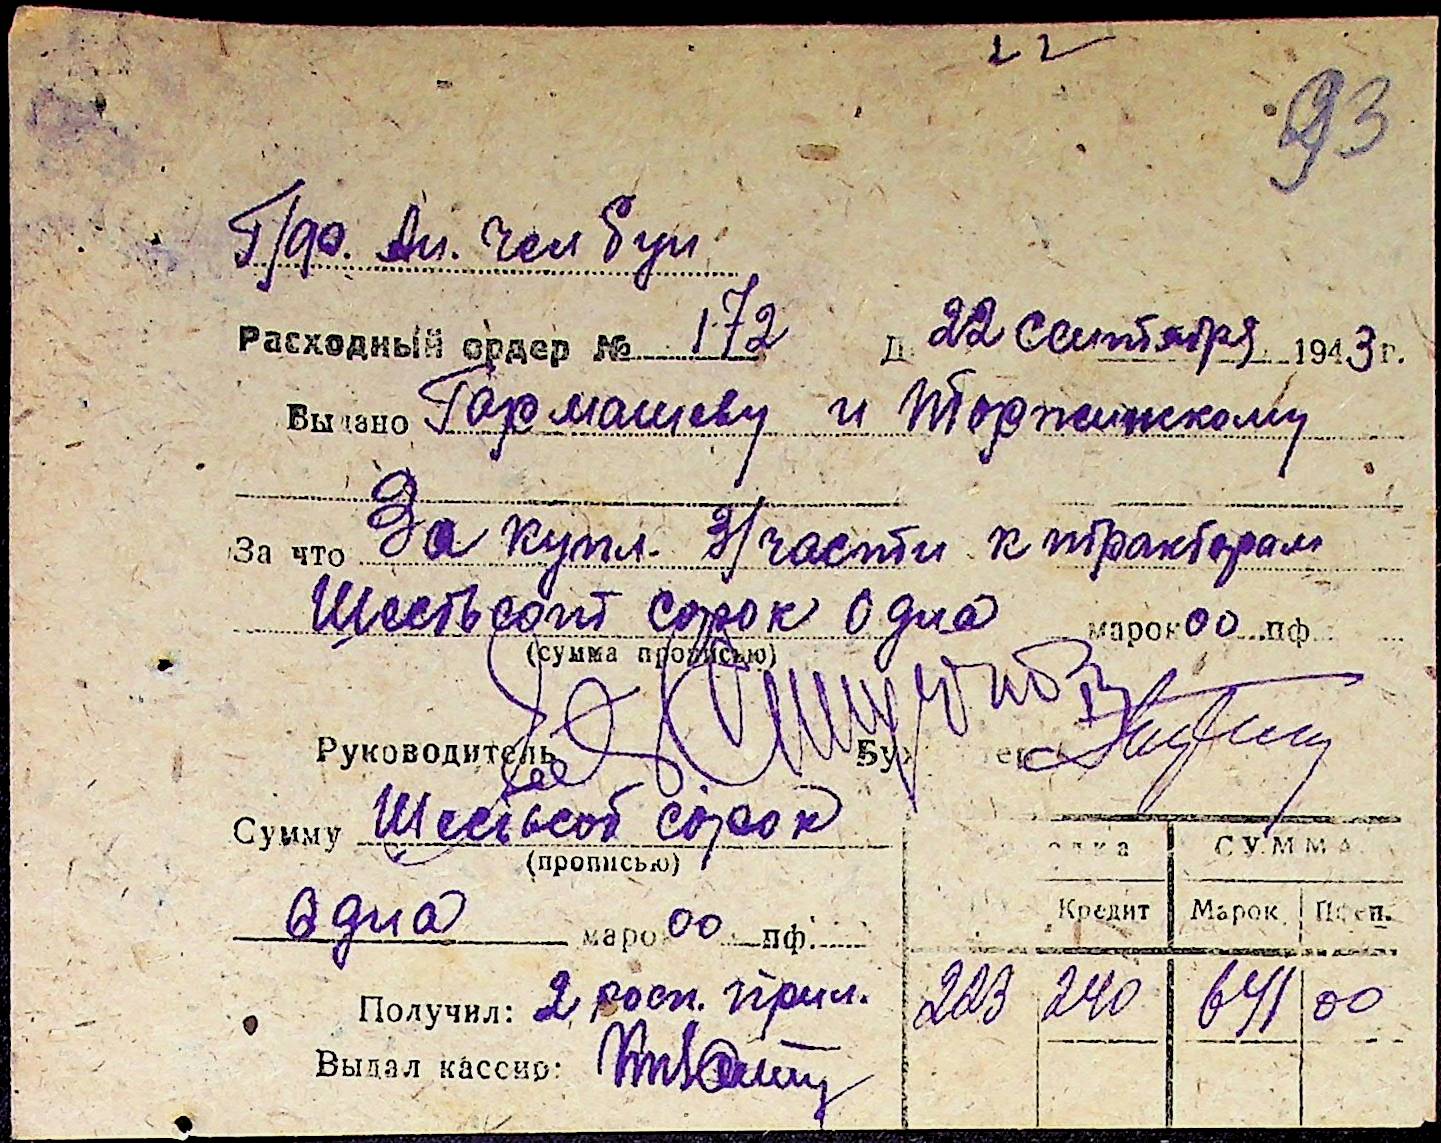 22
93
Г/ф. Ан. Чел бум
Расходный ордер № 172 Д. 22 сентября 1943 г.
Выдано Гармашеву и Торжинскому
За что За купл. З/части к тракторам
Шестьсот сорок одна марок 00 пф.
(сумма прописью)
Руководитель Бух
Сумму Шестьсот сорок
(прописью)
одна маро 00 пф.
СУММА
Кредит Марок Пфен.
Получил: 2 росп. прил. 223 240 641 00
Выдал кассир: